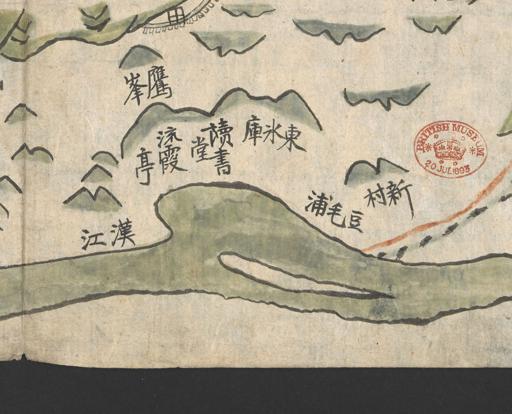 鷹峯
東氷庫
讀書堂
流霞亭
新村
豆毛浦
漢江
BRITISH MUSEUM
20 JUL 1895